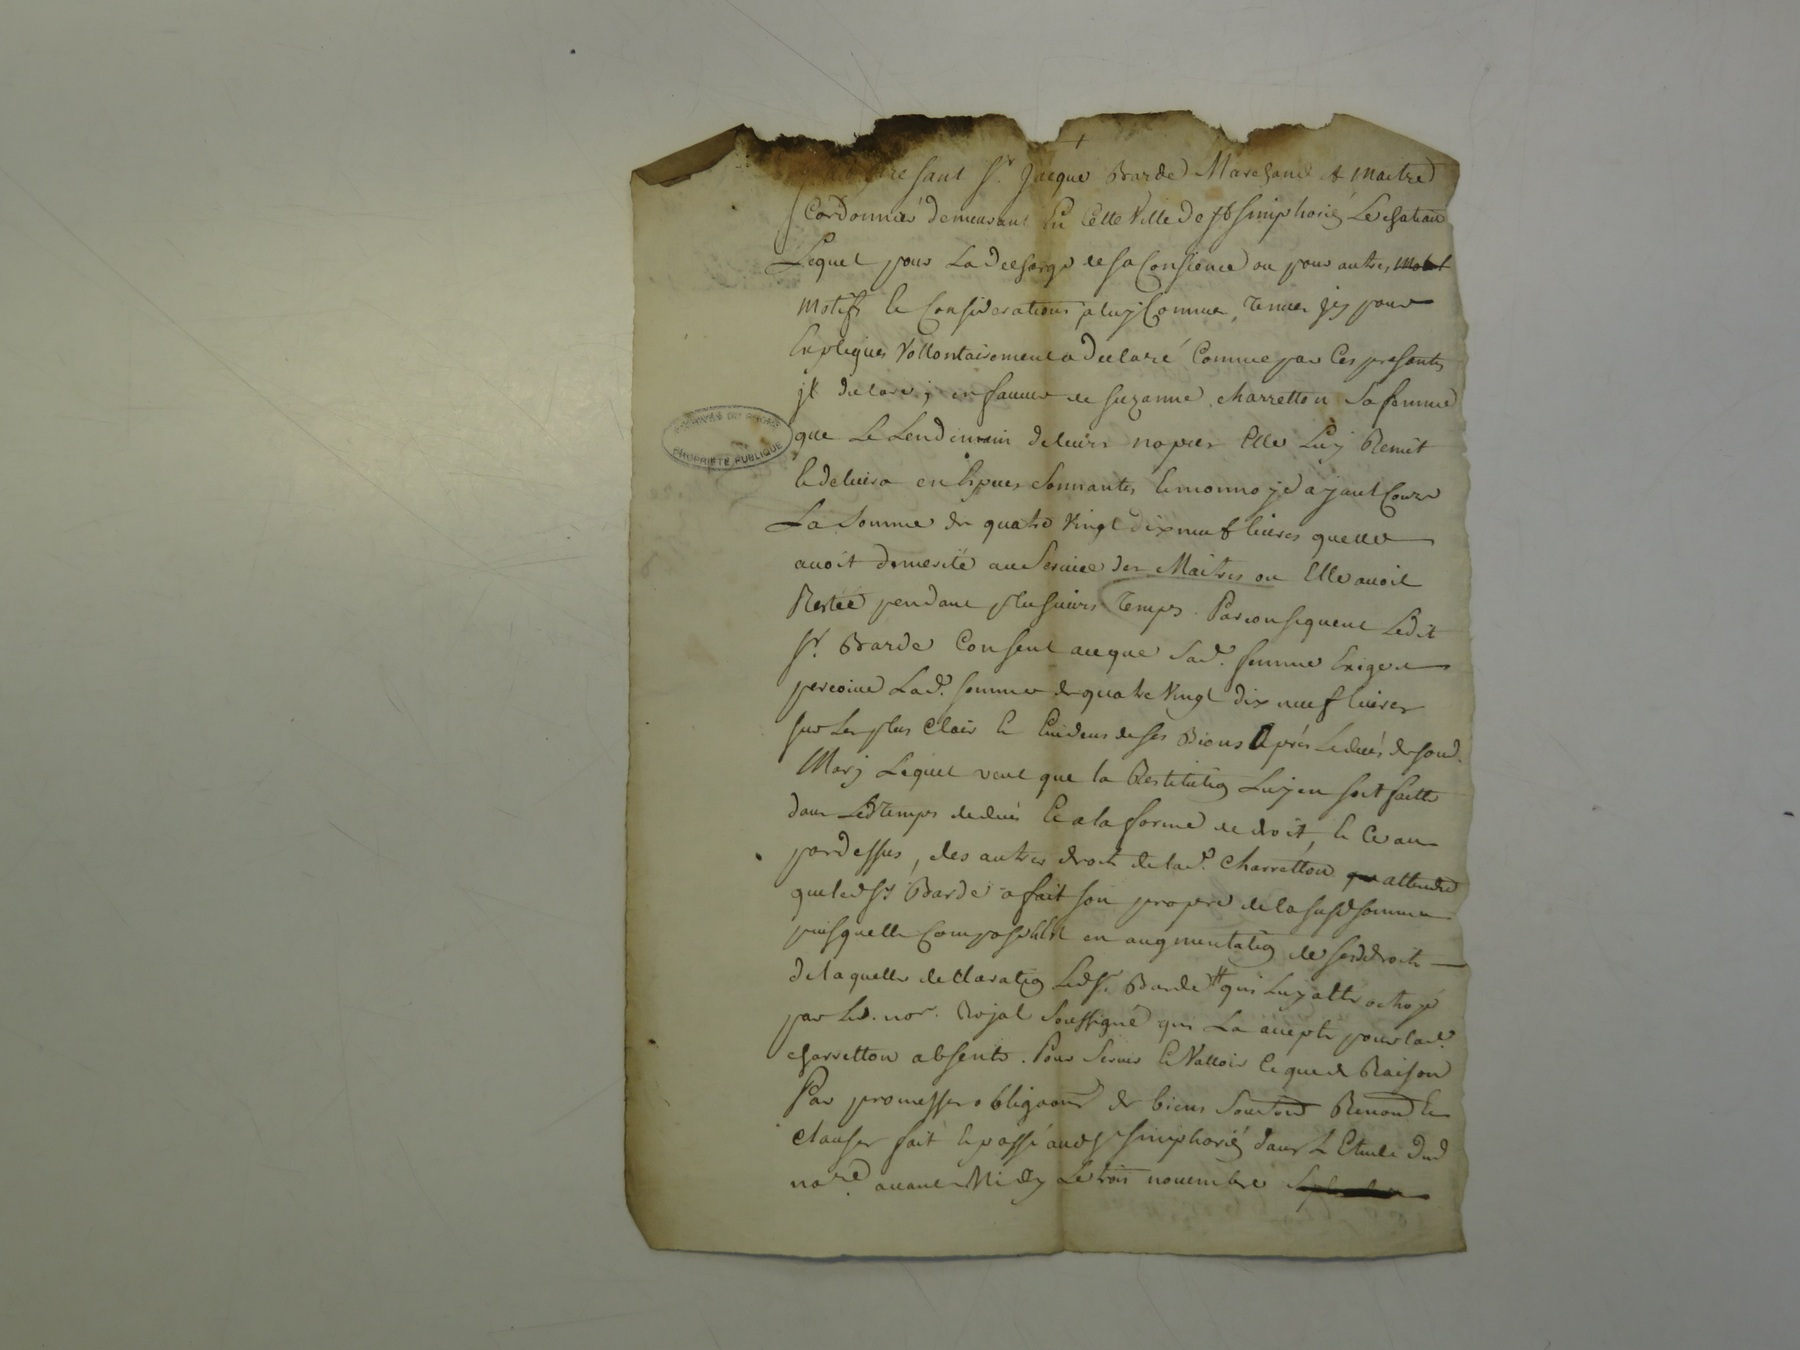 presant Sr. Jacque Barde Marchand & Maitre
Cordonnier demeurant En Cette Ville de St Simphorien Le chatau
Lequel pour La decharge de sa Consience ou pour autres
motifs Et Considerations a luy Connue,
Expliques Vollontairement a declaré Comme par Ces presantes
jl declare, en faueur de Suzanne charretton Sa femme
que Le Lendemain de leurs nopces Elle Luy Remit
Et deliura en Especes sonnantes Et monnoye ayant Cours
La Somme de quatre Vingt dix neuf liures quelle
auoit au Seruice des Maitres ou Elle auoit
Restée pendant plusieurs Temps. Par consequent Ledit
Sr. Barde Consent a ce que Sad. femme Exige et
percoiue Lad. somme de quatre Vingt dix neuf liures
sur Les plus Clair Et Euidens de ses Biens Aprés Le decés de sond.
Mary Lequel veut que la Restitution Luy en soit faitte
dans Led Temps de deuil Et a la forme de droit, Et Ce au
pardessus, des autres droits de lad. Charretton attendu
que led Sr. Barde a fait son propre de la susd somme
puisquelle en augmentation de ses droits
de laquelle declaration Led Sr. Barde qui Luy a été octroyé
par Led. nor. Royal Soussigné qui La accepté pour lad.
charretton absente. Pour Seruir Et Valloir Ce que de Raison
Par promesses obligaons de biens Renond Et
clauses fait Et passé aud St Simphorien dans L Etude dud
nore. auant Midy Le trois nouembre
ARCHIVES DU RHONE
PROPRIÉTÉ PUBLIQUE